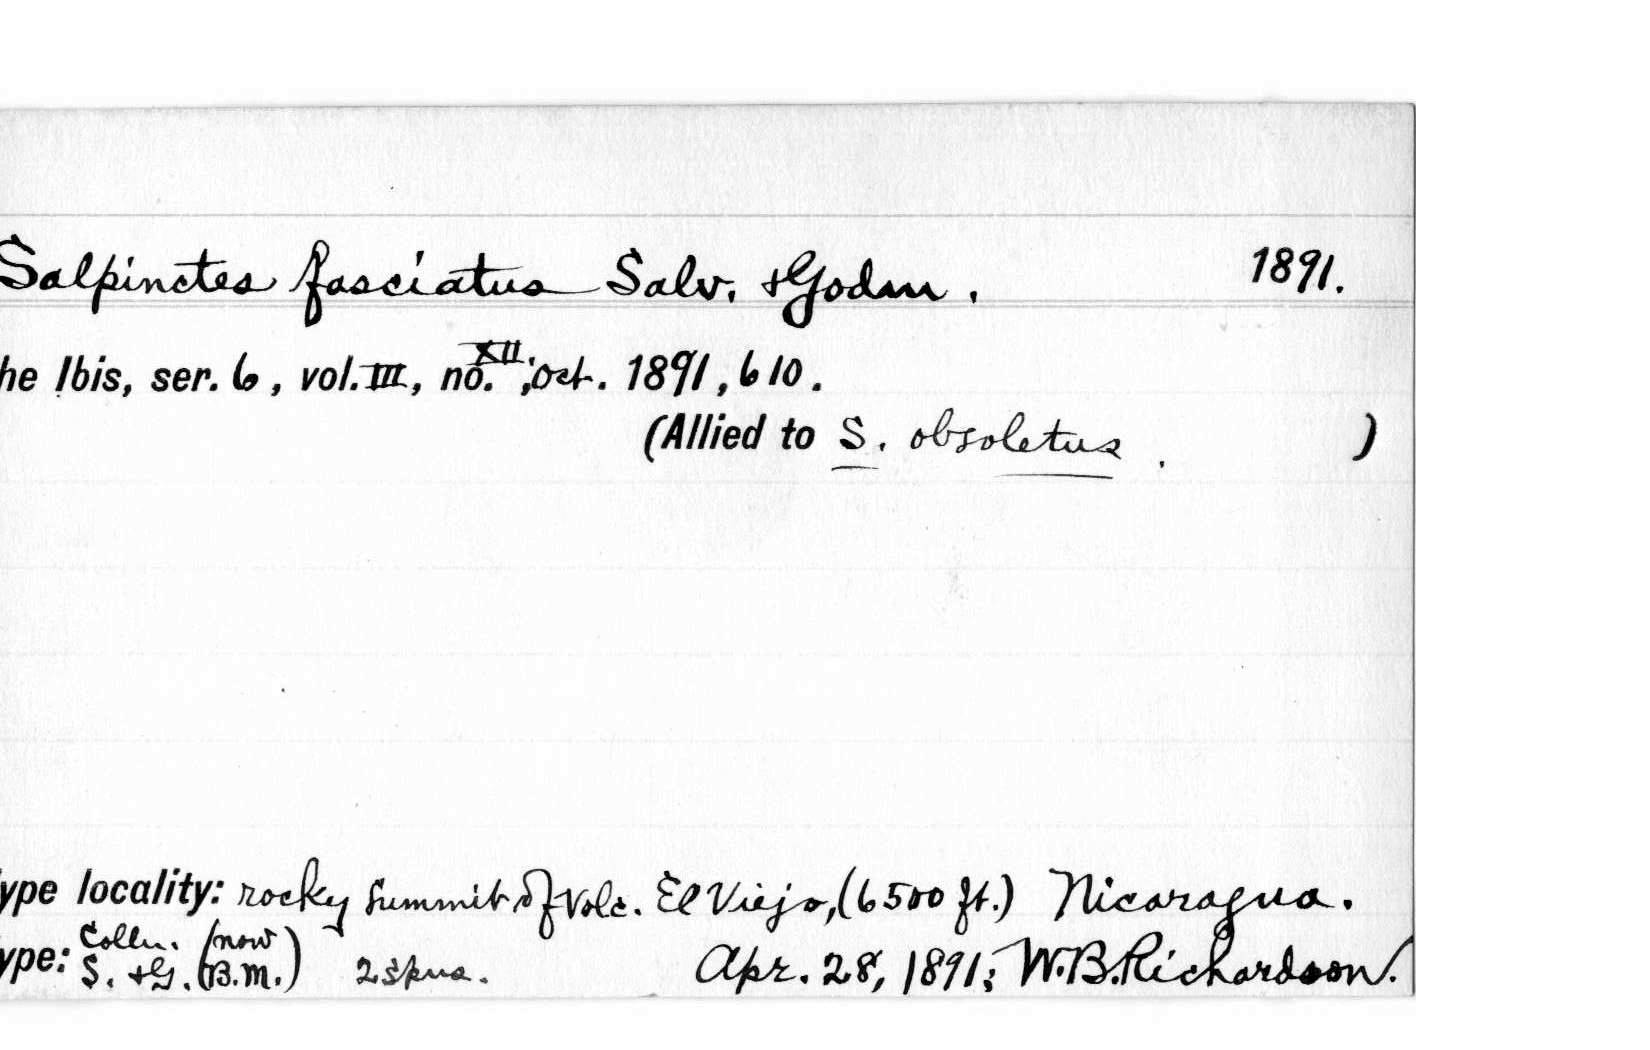 Salpinctes fasciatus Salv. + Godm. 1891.
he Ibis, ser. 6, vol. III, no. XII; oct. 1891, 610.
(Allied to S. obsoletus. )
ype locality: rocky summit of Volc. El Viejo, (6500 ft.) Nicaragua.
ype: Colln. S. + G. (now B.M.) 2 spns. Apr. 28, 1891; W.B. Richardson.